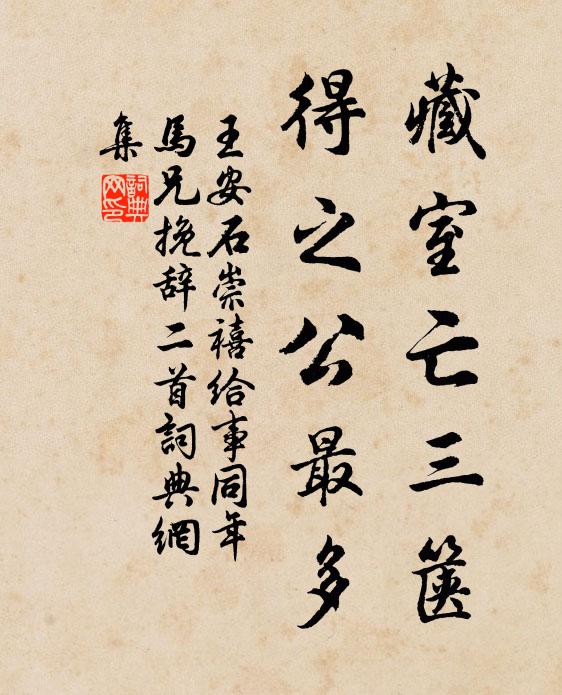 藏室亡三箧
得之公最多
王安石崇禧给事同年
馬兄挽辞二首詞典網
集
詞典
网印